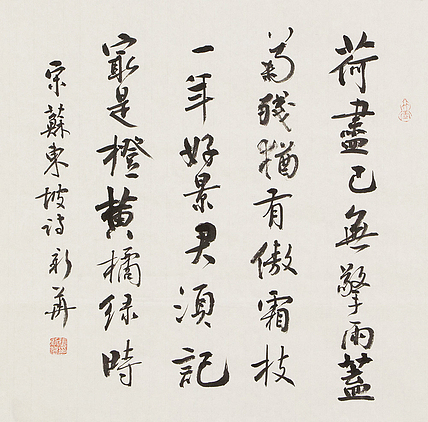 荷盡已無擎雨蓋
菊殘猶有傲霜枝
一年好景君須記
最是橙黃橘綠時
宋蘇東坡詩 新華